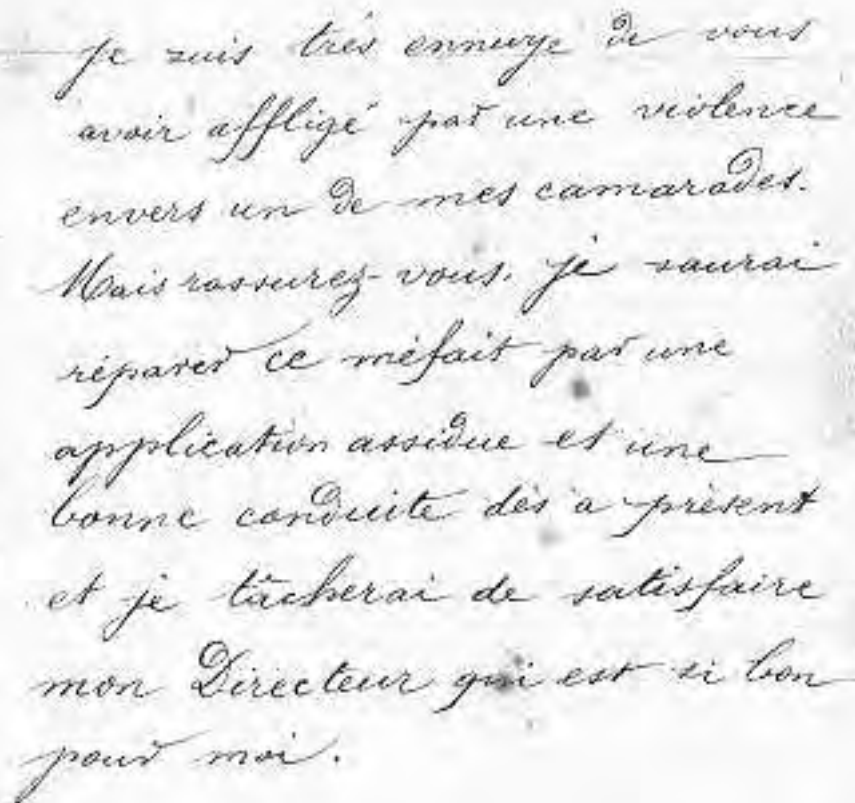 Je suis très ennuyé de vous
avoir affligé par une violence
envers un de mes camarades.
Mais rassurez-vous, je saurai
réparer ce méfait par une
application assidue et une
bonne conduite dès à présent
et je tâcherai de satisfaire
mon Directeur qui est si bon
pour moi.